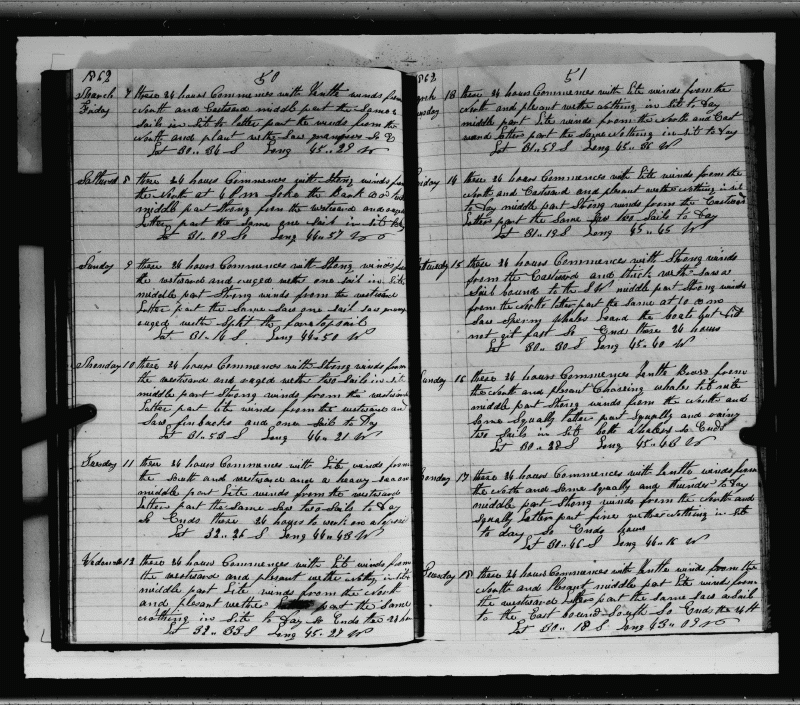 1862
50
March 7 these 24 hours Commences with Gentle winds from
Friday North and Eastward middle part the Same 2
Sails in Sit to latter part the winds from the
North and plant wether Saw grampuses So E
Lat 30.. 34 S Long 45.. 29 W
Satturd 8 these 24 hours Commences with Strong winds from
the North at 4 Pm
middle part Strong from the westward and ruged
Latter part the Same one Sail in Sit to
Lat 31.. 09 S Long 44.. 57 W
Sunday 9 these 24 hours Commences with Strong winds from
the westward and ruged wether one Sail in Sit
middle part Strong winds from the westward
Latter part the Same Saw one Sail
ruged with Split the foretopsail
Lat 31.. 16 S Long 44.. 50 W
Monday 10 these 24 hours Commences with Strong winds from
the westward and ruged wether two Sails in Sit
middle part Strong winds from the westward
Latter part Lite winds from the westward an
Saw finbacks and one Sail to Day
Lat 31.. 53 S Long 44.. 21 W
Tuesday 11 these 24 hours Commences with Lite winds from
the South and westward and a heavy Sea on
middle part Lite winds from the westward
Latter part the Same Saw two Sails to Day
So Ends these 24
Lat 32.. 26 S Long 44.. 43 W
Wedensd 12 these 24 hours Commences with Lite winds from
the westward and plesant wether Nothing in Sit
middle part Lite winds from the North
and plesant wether Latter part the Same
nothing in Site to Day So Ends the 24 hour
Lat 32.. 33 S Long 45.. 27 W
1862
51
13 these 24 hours Commences with Lite winds from the
North and plesant wether nothing in Sit to Day
middle part Lite winds from the North and East
ward Latter part the Same Nothing in Sit to Day
Lat 31.. 59 S Long 45.. 36 W
Friday 14 these 24 hours Commences with Lite winds from the
North and Eastward and plesant wether nothing in sit
to Day middle part Strong winds from the Eastward
Latter part the Same Saw two Sails to Day
Lat 31.. 19 S Long 45.. 45 W
Satturday 15 these 24 hours Commences with Strong winds
from the Eastward and thick wether Saw a
Sail bound to the S W middle part Strong winds
from the North latter part the Same at 10
Saw Sperm whales Loard the boats but Did
not git fast So Ends these 24 hours
Lat 30.. 30 S Long 45.. 40 W
Sunday 16 these 24 hours Commences Gentle from
the North and plesant Chaseing whales
middle part Strong winds from the North and
Some Squally latter part Squally and
two Sails in Sit both So Ends
Lat 30.. 28 S Long 45.. 46 W
Monday 17 these 24 hours Commences with Gentle winds from
the North and Some Squally and thunder to Day
middle part Strong winds from the North and
Squally Latter part fine wether nothing in Sit
to day So Ends
Lat 30.. 46 S Long 44.. 16 W
18 these 24 hours Commences with Gentle winds from the
North and Plesant middle part Lite winds from
the westward Latter part the Same Saw a Sail
to the East bound South So Ends the 24 H
Lat 30.. 18 S Long 43.. 09 W